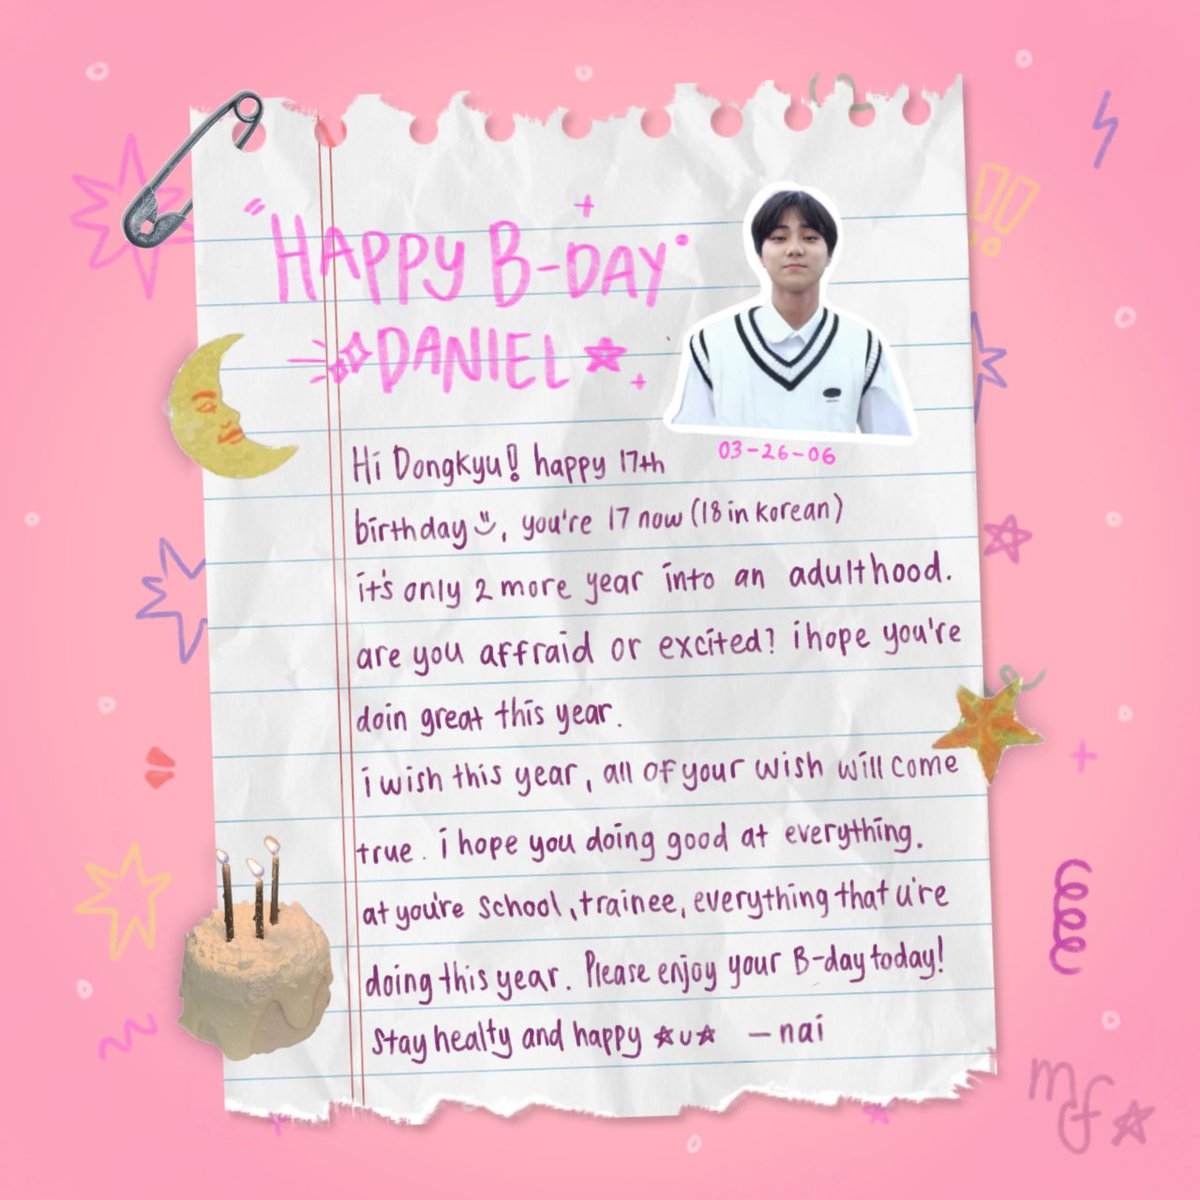 "HAPPY B-DAY
DANIEL
03-26-06
Hi Dongkyu! happy 17th
birthday, you're 17 now (18 in korean)
it's only 2 more year into an adulthood.
are you affraid or excited? i hope you're
doin great this year.
i wish this year, all of your wish will come
true. i hope you doing good at everything.
at you're school, trainee, everything that u're
doing this year. Please enjoy your B-day today!
Stay healty and happy ☆u☆ — nai
!!
mf